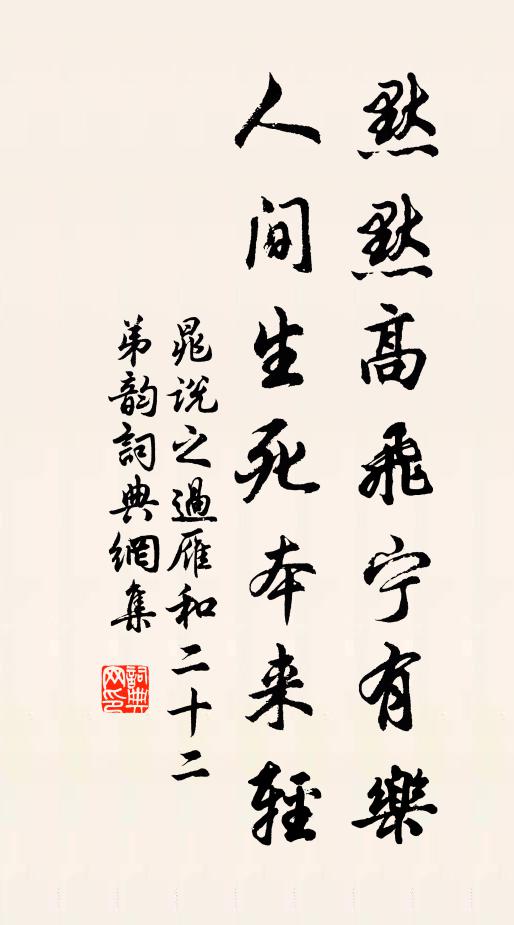 默默高飛宁有樂
人间生死本来輕
晁说之過雁和二十二
弟韵詞典網集
詞典网印